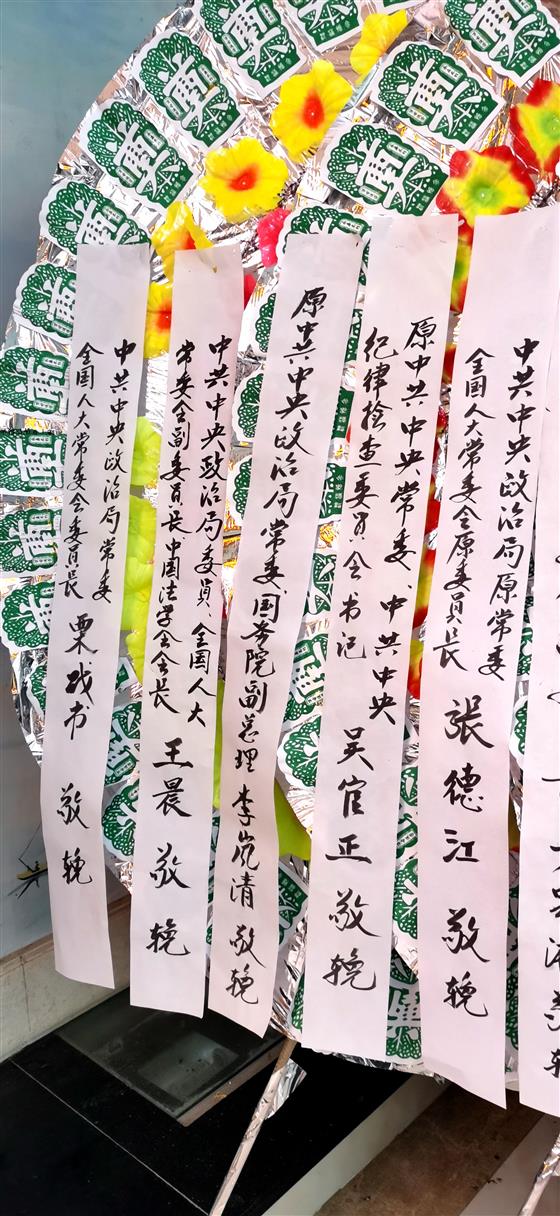 中共中央政治局原常委
全国人大常委会原委员长
張德江 敬挽
原中共中央常委、中共中央
纪律捡查委员会书记
吴官正 敬挽
原中共中央政治局常委、国务院副总理 李岚清 敬挽
中共中央政治局委员、全国人大
常委会副委员长中国法学会会长
王晨 敬挽
中共中央政治局常委
全国人大常委会委员长
栗战书 敬挽
奠